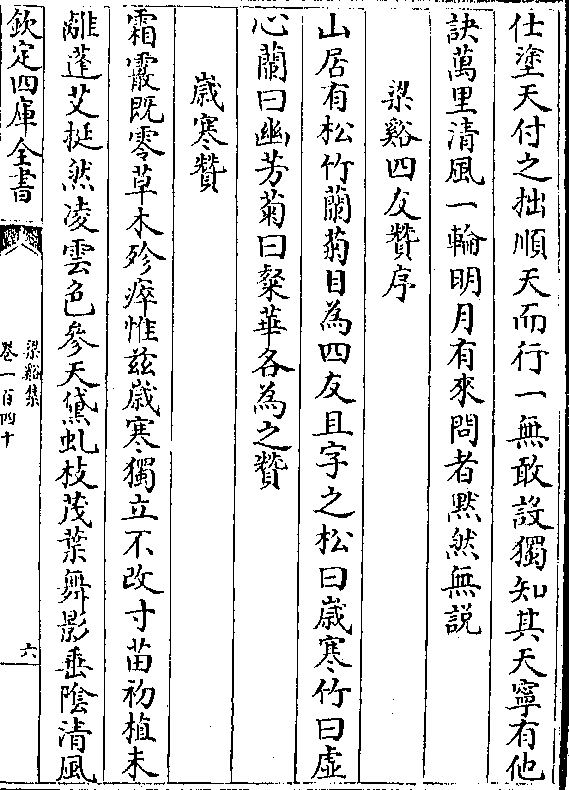 仕塗天付之拙順天而行一無敢設獨知其天寧有他
訣萬里清風一輪明月有來問者黙然無説
梁谿四友贊序
山居有松竹蘭菊目為四友且字之松曰嵗寒竹曰虚
心蘭曰幽芳菊曰粲華各為之贊
嵗寒贊
霜霰既零草木殄瘁惟兹嵗寒獨立不改寸苗初植未
離蓬艾挺然凌雲色參天黛虬枝茂葉舞影垂隂清風
欽定四庫全書
梁谿集
卷一百四十
六